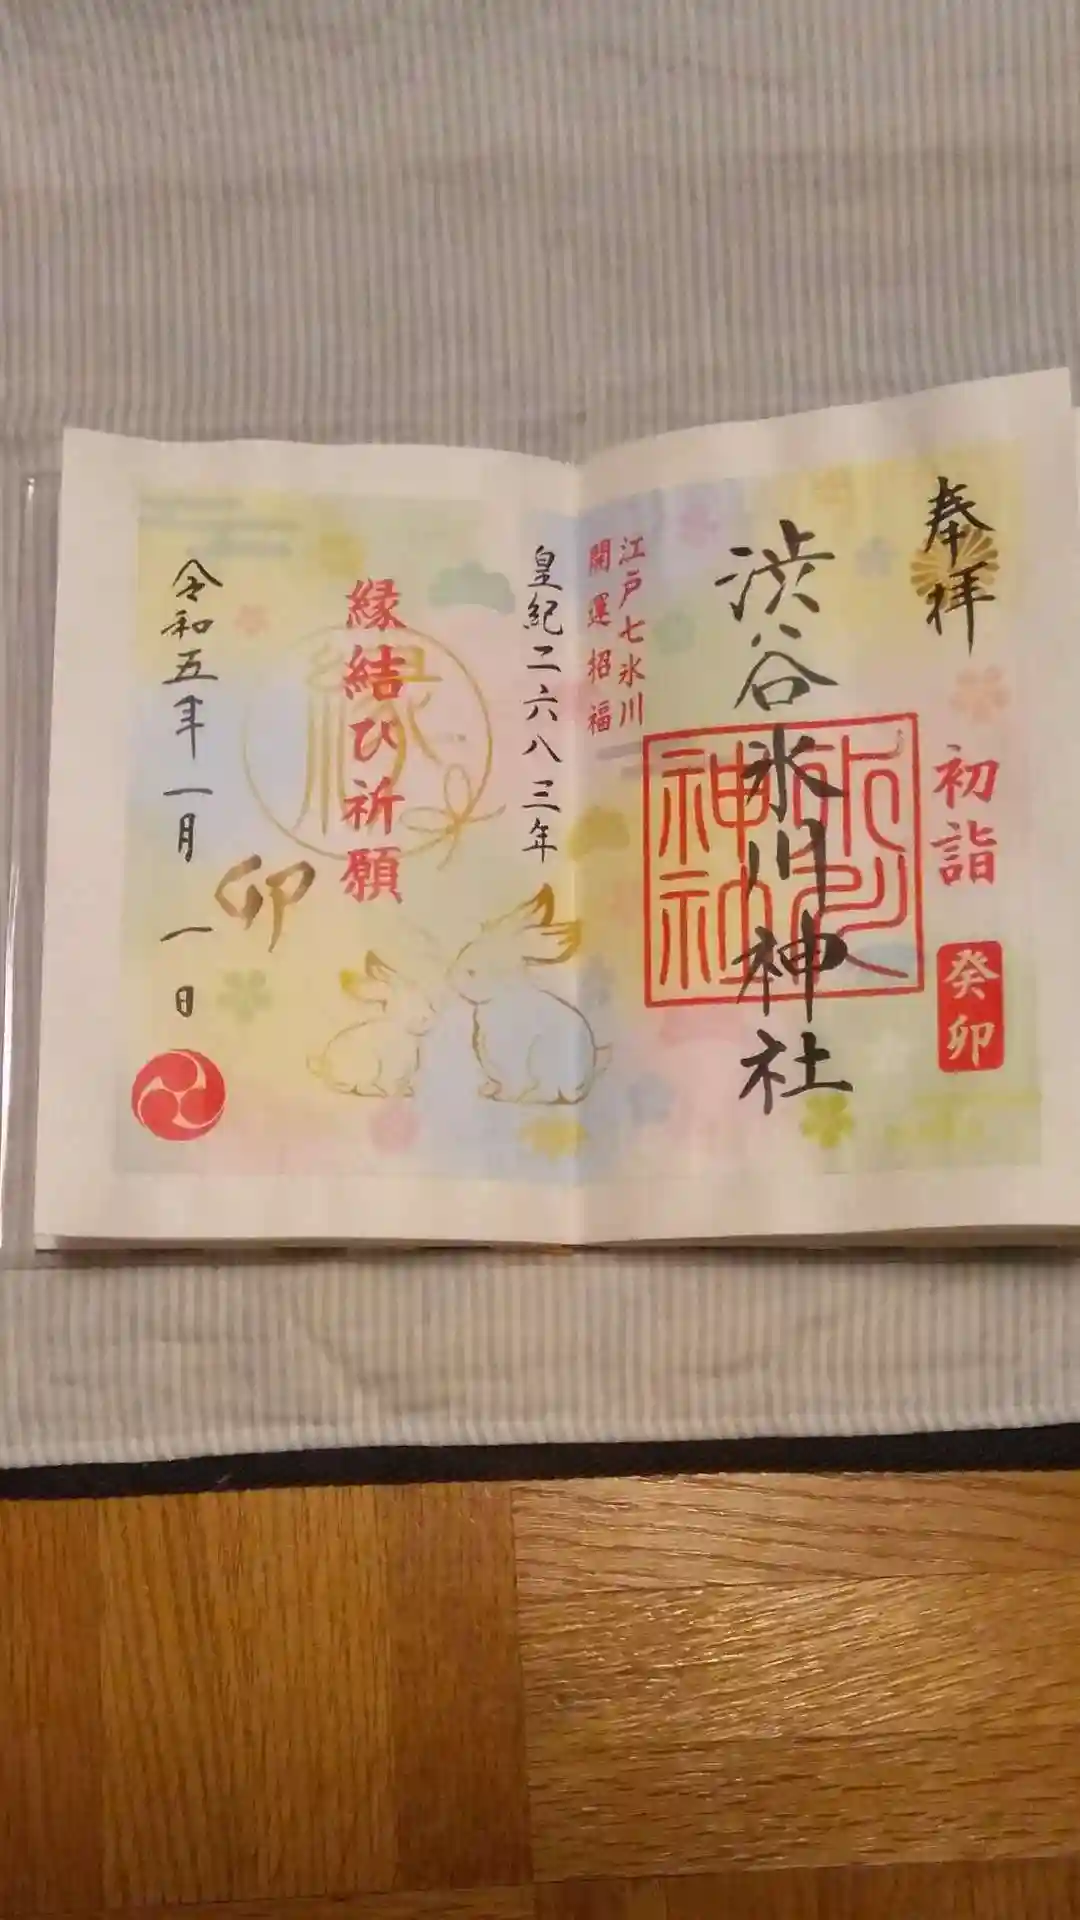 奉拝
初詣
癸卯
渋谷氷川神社
氷川
神社
江戸七氷川
開運招福
皇紀二六八三年
縁結び祈願
縁
卯
令和五年一月一日